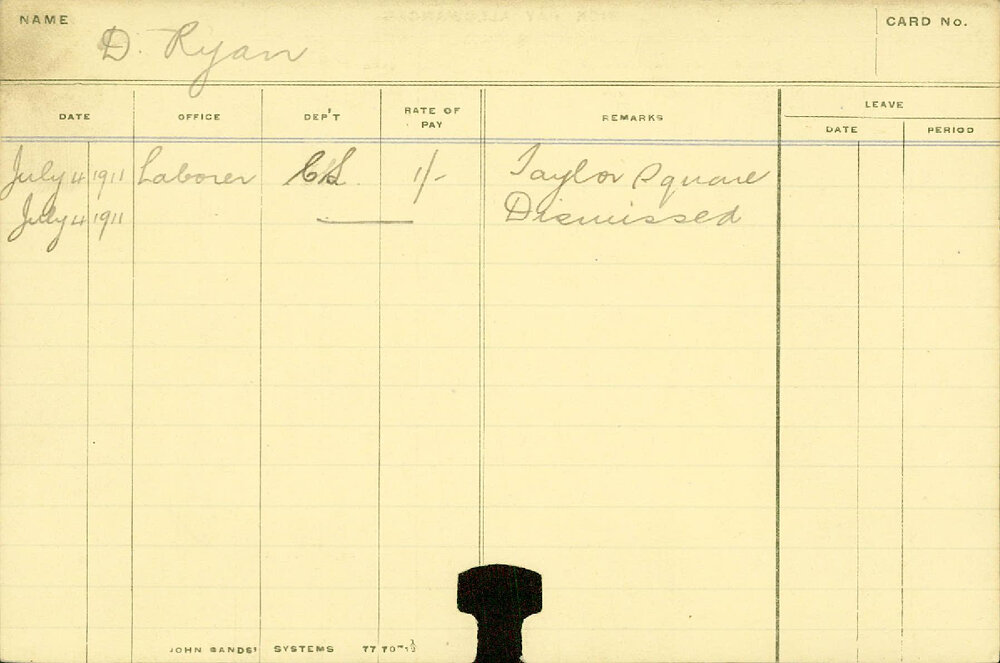 NAME D. Ryan CARD No.
DATE OFFICE DEP'T RATE OF PAY REMARKS LEAVE
DATE PERIOD
July 4 1911 Laborer 1/- Taylor Square
July 4 1911 Dismissed
JOHN SANDS' SYSTEMS